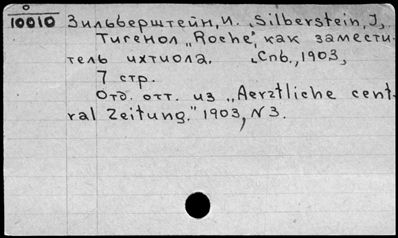 0
10010 Зильберштейн, И. „Silberstein, J.„
Тигенол „Roche", как замести-
тель ихтиола. „Спб., 1903,
7 стр.
Отд. отт. из „Aerztliche cent-
ral Zeitung." 1903, N 3.